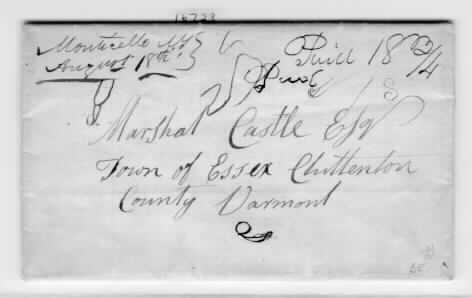 16723
Monticello
August 18th
Paid 18 3/4
Marshal Castle Esq
Town of Essex Chittenton
County Varmont